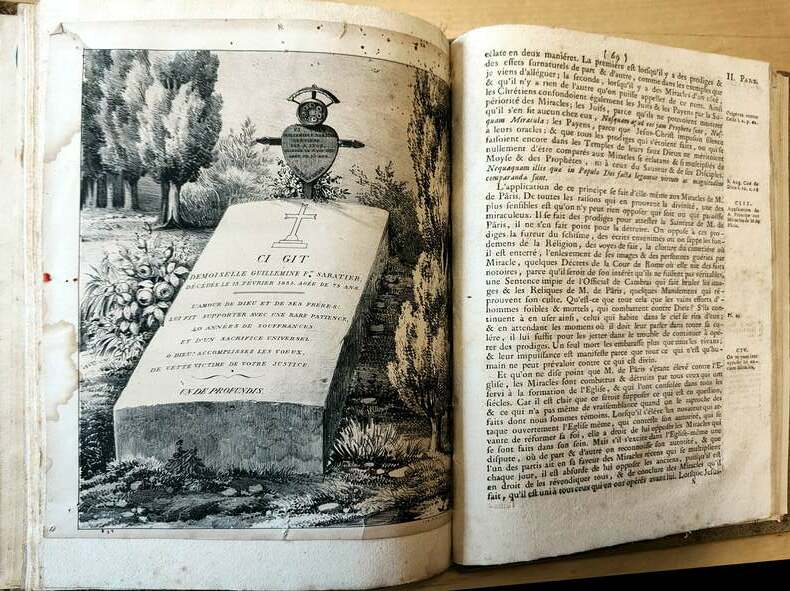 CI GIT
DEMOISELLE GUILLEMINE F.se SABATIER,
DÉCÉDÉE LE 13 FÉVRIER 1835. AGÉE DE 79 ANS.
L'AMOUR DE DIEU ET DE SES FRÈRES
LUI FIT SUPPORTER AVEC UNE RARE PATIENCE,
40 ANNÉES DE SOUFFRANCES
ET D'UN SACRIFICE UNIVERSEL
O DIEU! ACCOMPLISSEZ LES VOEUX,
DE CETTE VICTIME DE VOTRE JUSTICE.
UN DE PROFUNDIS.
( 69 )
II. PART.
éclate en deux maniéres. La premiére est lorsqu'il y a des prodiges &
des effets surnaturels de part & d'autre, comme dans les exemples que
je viens d'alléguer; la seconde, lorsqu'il y a des Miracles d'un côté,
& qu'il n'y a rien de l'autre qu'on puisse appeller de ce nom. Ainsi
les Chrétiens confondoient également les Juifs & les Payens par la Su-
périorité des Miracles; les Juifs, parce qu'ils ne pouvoient montrer
qu'il s'en fît aucun chez eux,
quam Miracula: les Payens, parce que Jesus-Christ imposa silence
à leurs oracles; & que tous les prodiges qui s'étoient faits, ou qui se
faisoient encore dans les Temples de leurs faux Dieux ne méritoient
nullement d'être comparés aux Miracles si éclatans & si multipliés de
Moyse & des Prophétes, ni à ceux du Sauveur & de ses Disciples.
Nequaquam illis quæ in Populo Dei facta legimus verum ac magnitudine
comparanda sunt.
L'application de ce principe se fait d'elle-même aux Miracles de M.
de Pâris. De toutes les raisons qui en prouvent la divinité, une des
plus sensibles est qu'on n'y peut rien opposer qui soit ou qui paroisse
miraculeux. Il se fait des prodiges pour attester la Sainteté de M. de
Pâris, il ne s'en fait point pour la détruire. On oppose à ces pro-
diges la fureur du schisme, des écrits envenimés ou on sappe les fon-
demens de la Religion, des voyes de fait, la clôture du cimetiére où
il est enterré, l'enlevement de ses images & des personnes guéries par
Miracle, quelques Décrets de la Cour de Rome où elle nie des faits
notoires, parce qu'il seroit de son intérêt qu'ils ne fussent pas véritables,
une Sentence impie de l'Official de Cambrai qui fait bruler les ima-
ges & les Reliques de M. de Pâris, quelques Mandemens qui ré-
prouvent son culte. Qu'est-ce que tout cela que les vains efforts d'
hommes foibles & mortels, qui combattent contre Dieu? S'ils con-
tinuent à en user ainsi, celui qui habite dans le ciel se rira d'eux;
& en attendant les momens où il doit leur parler dans toute sa co-
lère, il lui suffit pour les jetter dans le trouble de continuer à opé-
rer des prodiges. Un seul mort les embarasse plus que tous les vivans;
& leur impuissance est manifeste parce que tout ce qui n'est qu'hu-
main ne peut prévaloir contre ce qui est divin.
Et qu'on ne dise point que M. de Pâris s'étant élevé contre l'E-
glise, les Miracles sont combattus & détruits par tous ceux qui ont
servi à la formation de l'Eglise, & qui l'ont consolée dans tous les
siécles. Car il est clair que ce seroit supposer ce qui est en question,
& ce qui n'a pas même de vraisemblance quand on le raproche des
faits dont nous sommes témoins. Lorsqu'il s'éléve un novateur qui at-
taque ouvertement l'Eglise même, qui conteste son autorité, qui se
vante de réformer sa foi, elle a droit de lui opposer les Miracles qui
se sont faits dans son sein. Mais s'il s'excite dans l'Eglise-même une
dispute, où de part & d'autre on reconnoisse son autorité, & que
l'un des partis ait en sa faveur des Miracles récens qui se multiplient
chaque jour, il est absurde de lui opposer les anciens, puisqu'il est
en droit de les révendiquer tous, & de conclure des Miracles qu'il
fait, qu'il est uni à tous ceux qui en ont opérés avant lui. Lorsque Jesus-